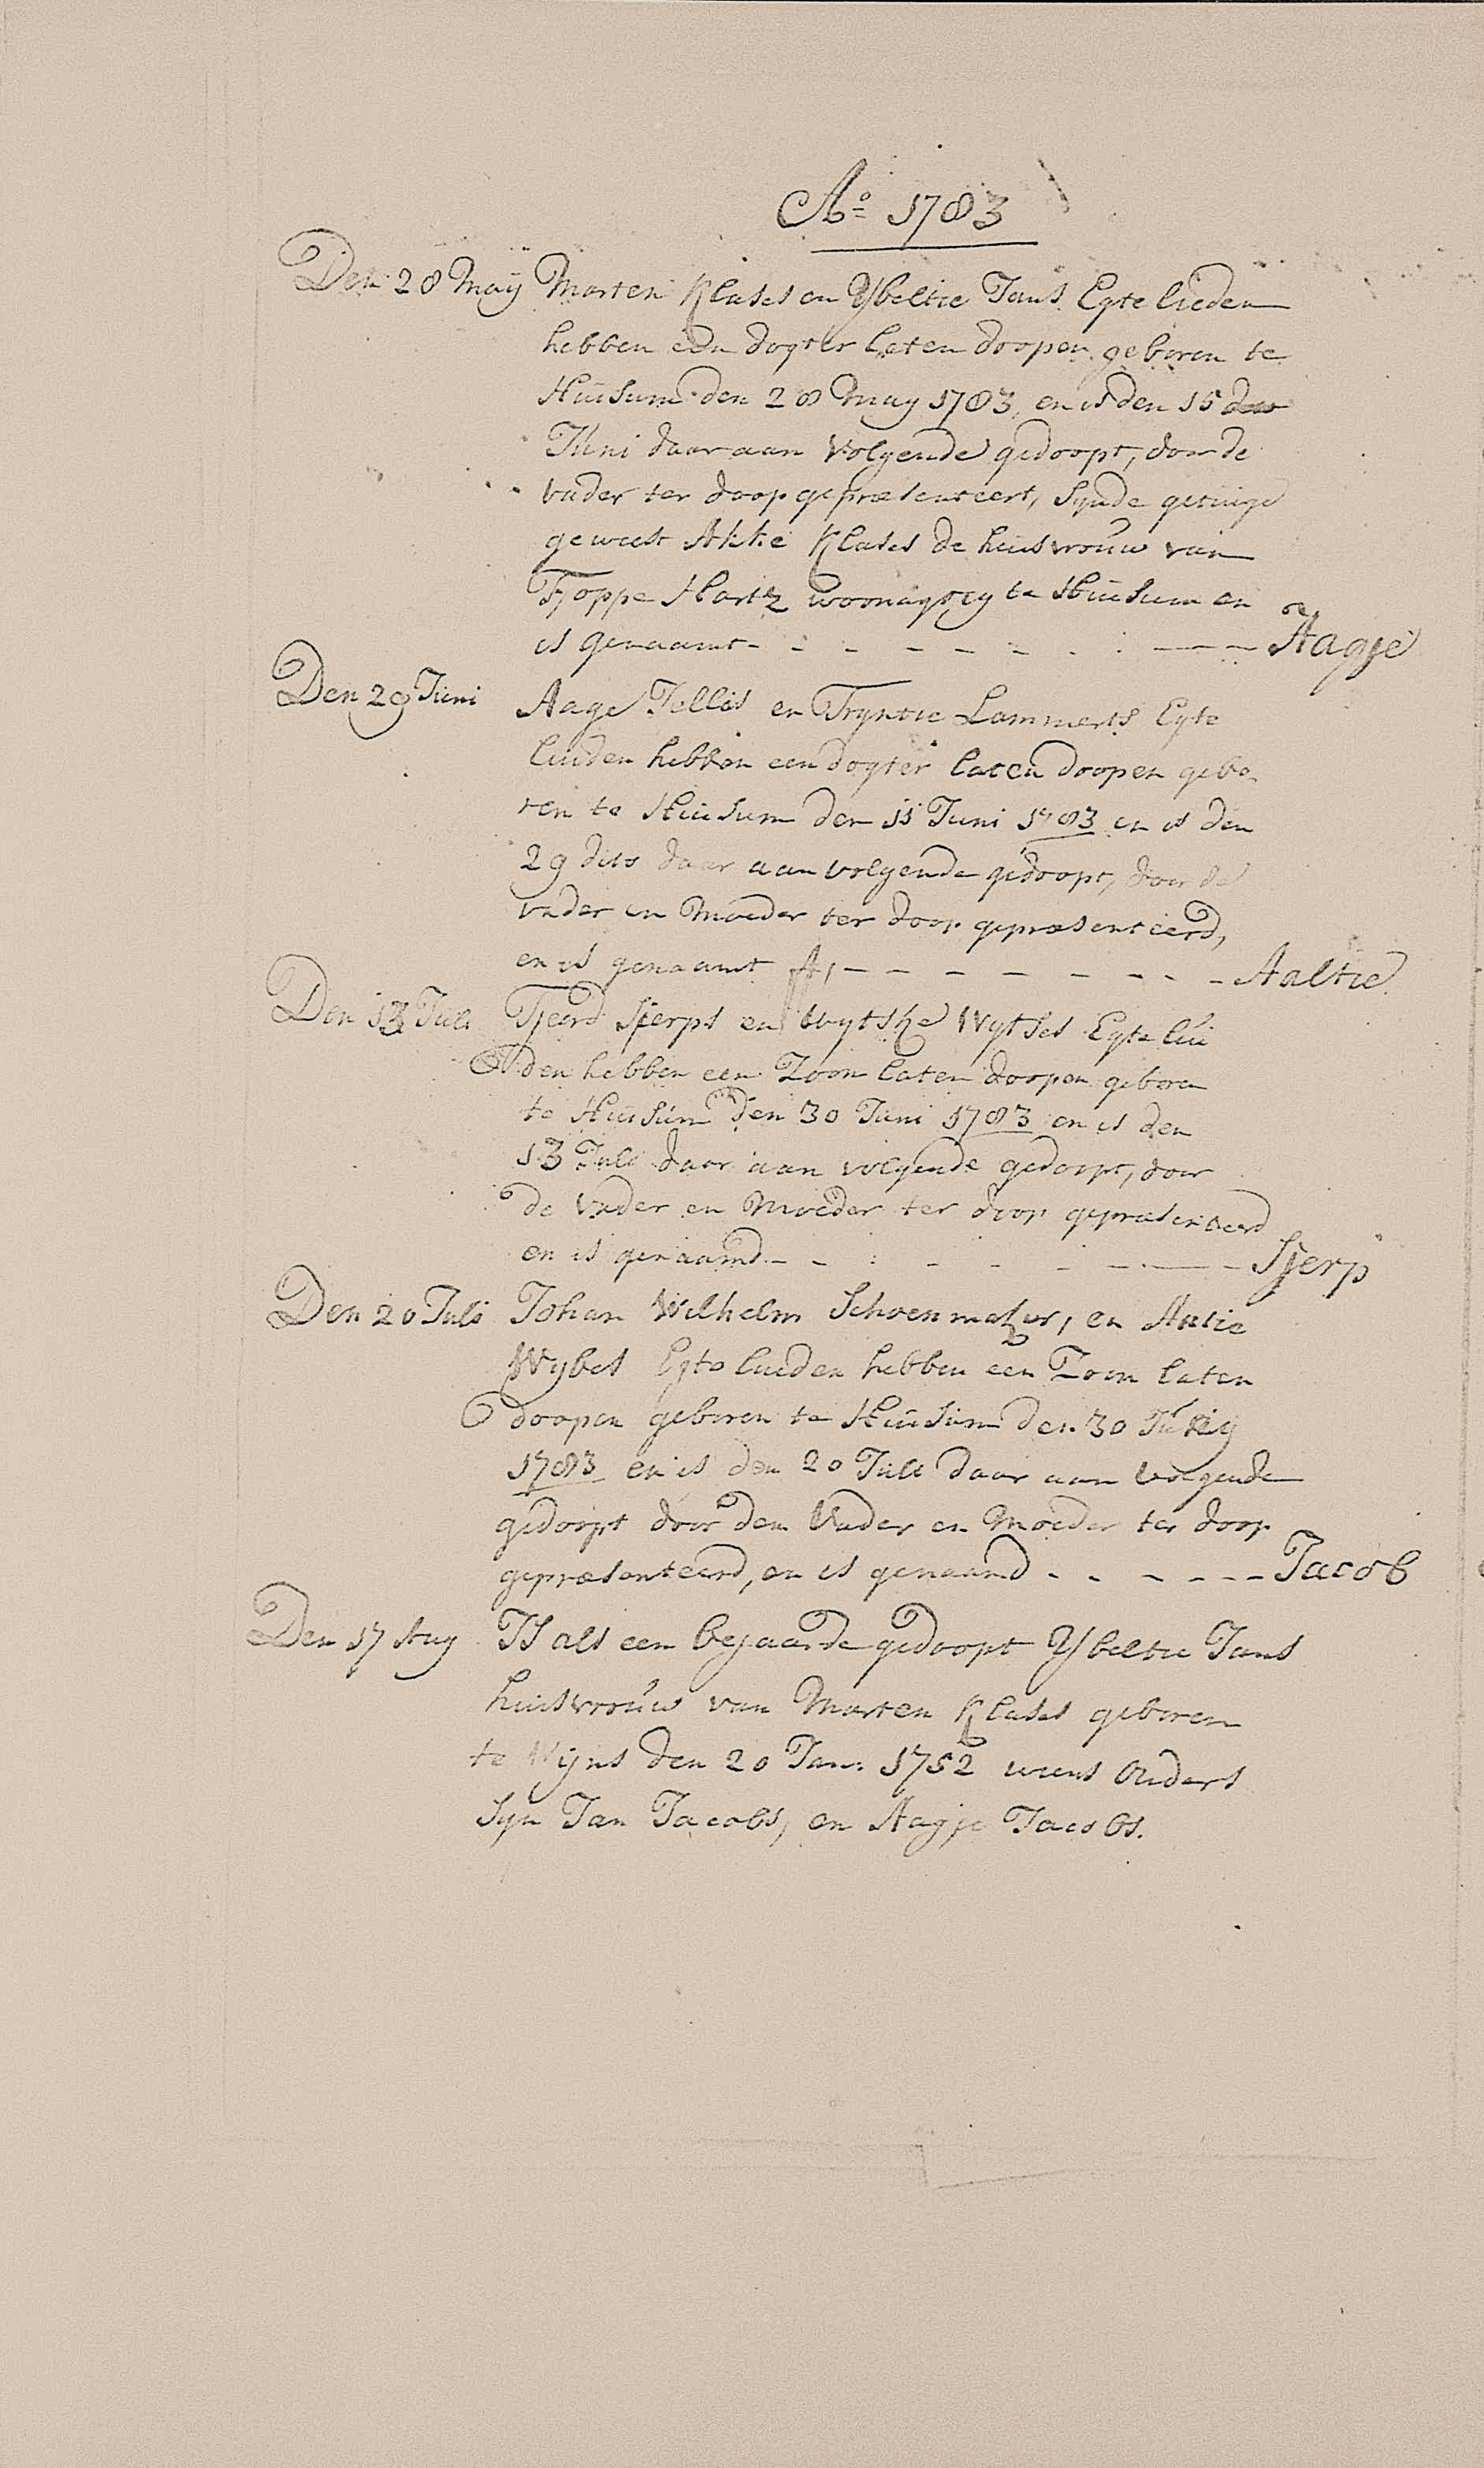 Ao 1783
Den 28 Maÿ Marten Klases en Ybeltie Jans Egte lieden
hebben een dogter laten doopen geboren te
Huisum den 28 May 1783, en is den 15
Juni daar aan volgende gedoopt, door de
vader ter doop gepræsenteert, synde getuige
geweest Akke Klases de huisvrouw van
Tjoppe Hartz woonagtig te Huisum en
is genaamt - - - - - - - - Aagje
Den 29 Juni Aage Jelles en Tryntie Lammerts Egte
luiden hebben een dogter laten doopen gebo
ren te Huisum den 11 Juni 1783 en is den
29 dito daar aan volgende gedoopt, door de
vader en Moeder ter doop gepræsenteerd,
en is genaamt A, - - - - - - - - Aaltie
Den 13 Juli Tjeerd Sjerps en Wytske Wytses Egte lui
den hebben een Zoon laten doopen geboren
te Huisum den 30 Juni 1783 en is den
13 Juli daar aan volgende gedoopt, door
de Vader en Moeder ter doop gepræsenteerd
en is genaamd - - - - - - - Sjerp
Den 20 Juli Johan Wilhelm Schoenmaker, en Antie
Wybes Egte luiden hebben een Zoon laten
doopen geboren te Huisum den 30
1783 en is den 20 Juli daar aan volgende
gedoopt door den Vader en Moeder ter doop
gepræsenteerd, en is genaamd - - - - - - Jacob
Den 17 Aug Is als een bejaarde gedoopt Ybeltie Jans
huisvrouw van Marten Klases geboren
te Wyns den 20 Jan: 1752 wiens Ouders
syn Jan Jacobs, en Aagje Jacobs.